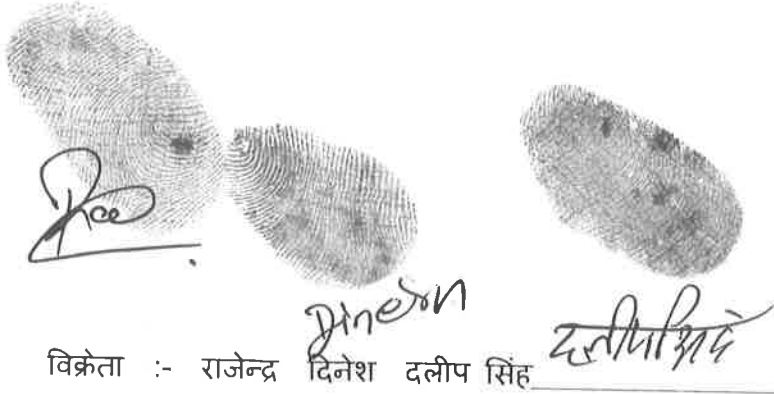 Dinesh
दलीप सिंह
विक्रेता :- राजेन्द्र दिनेश दलीप सिंह